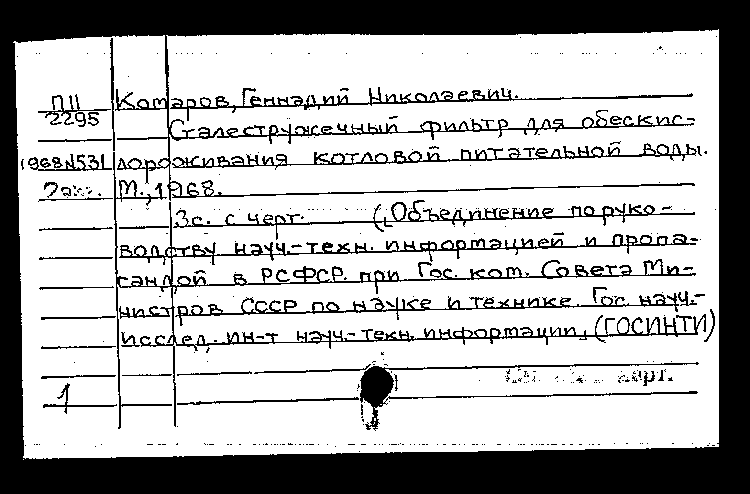 П11 Комаров, Геннадий Николаевич.
2295 Сталестружечный фильтр для обескис-
1968 N531 лороживания котловой питательной воды.
2 экз. М., 1968.
3с. с черт. (Объединение по руко-
водству науч.-техн. информацией и пропа-
гандой в РСФСР. при Гос. ком. Совета Ми-
нистров СССР по науке и технике. Гос. науч.-
исслед. ин-т науч.-техн. информации, (ГОСИНТИ)
карт.
1